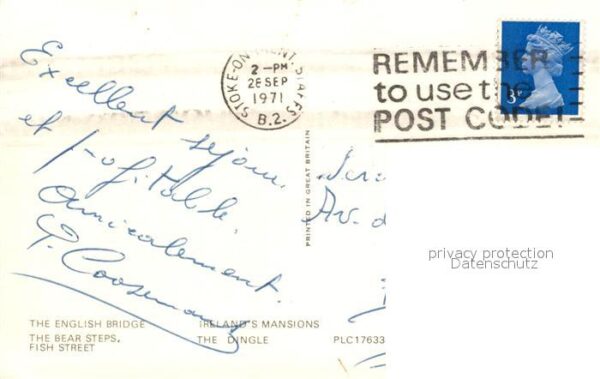 Excellent séjour
et profitable.
amicalement.
P. Coosemans
STOKE-ON-TRENT, STAFFS
2-PM
28 SEP
1971
B.2.
REMEMBER
to use the
POST CODE!
3P
PRINTED IN GREAT BRITAIN
Av. d
privacy protection
Datenschutz
THE ENGLISH BRIDGE IRELAND'S MANSIONS
THE BEAR STEPS, THE DINGLE PLC17633
FISH STREET